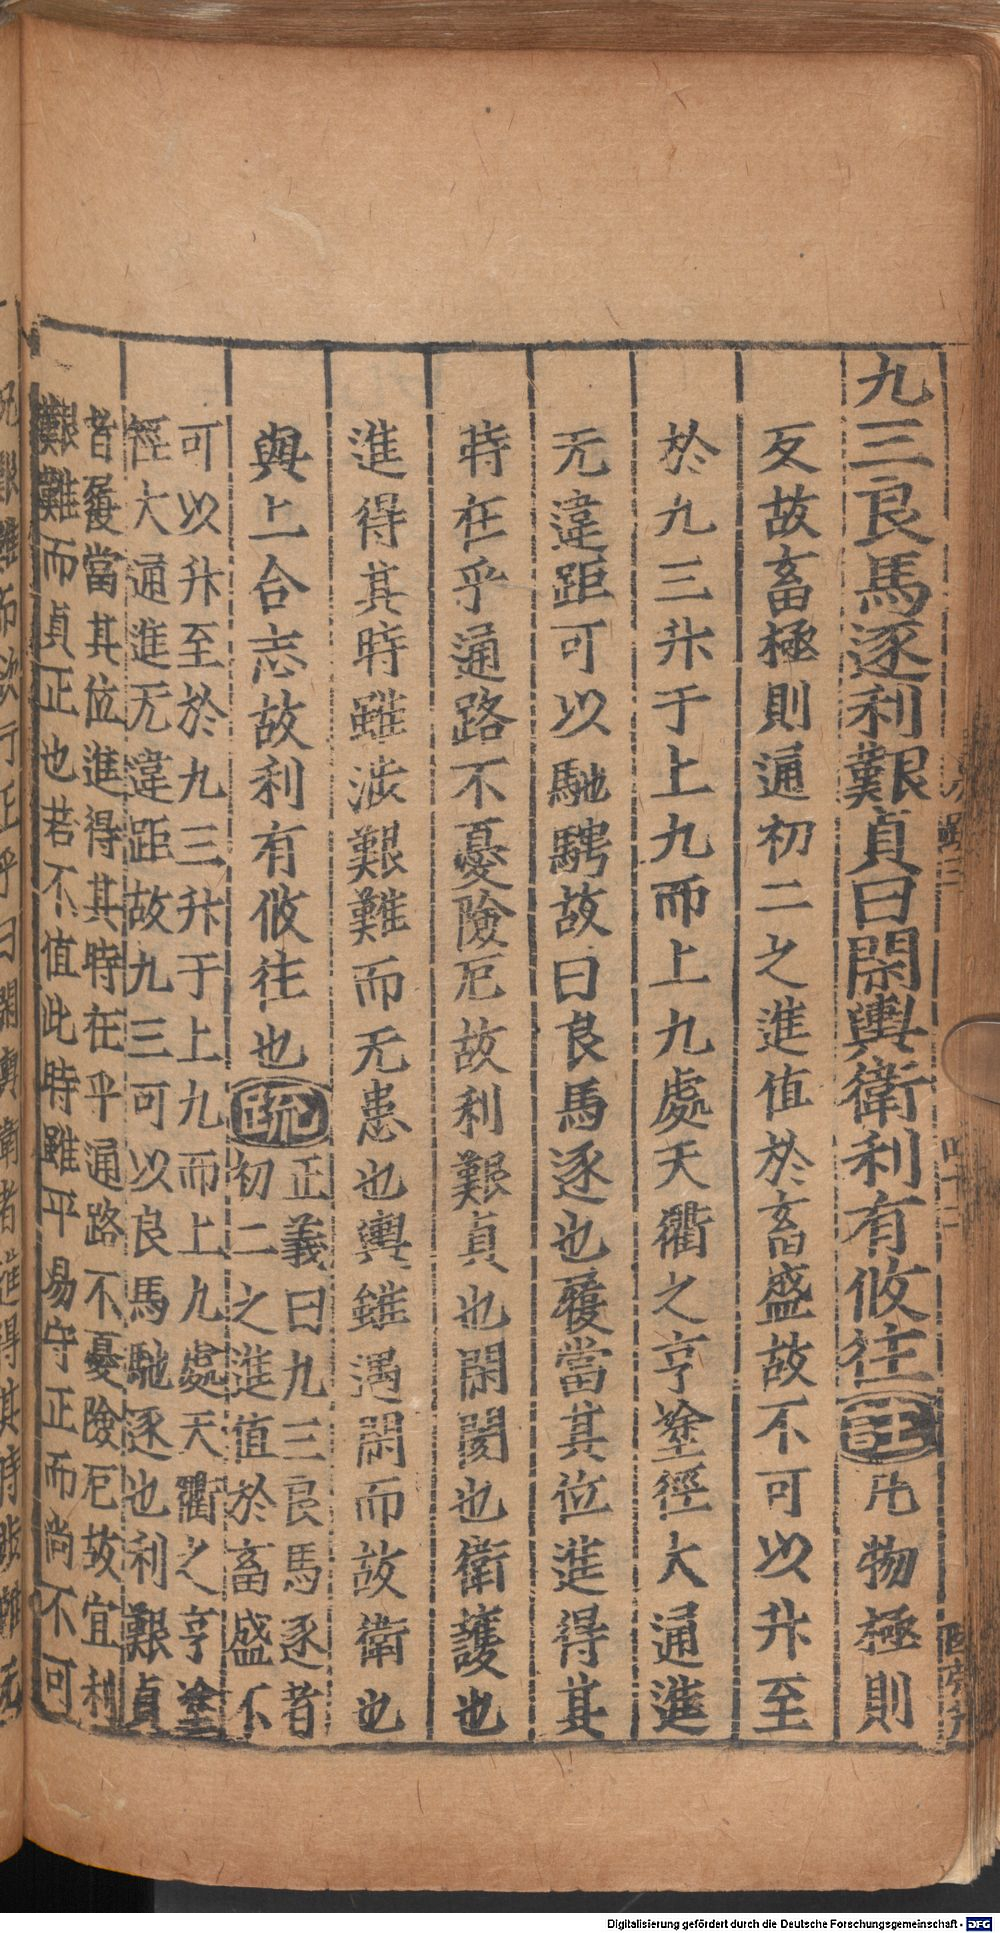 九三良馬逐利艱貞曰閑輿衛利有攸往註凡物極則
反故畜極則通初二之進值於畜盛故不可以升至
於九三升于上九而上九處天衢之亨塗徑大通進
无違距可以馳騁故曰良馬逐也履當其位進得其
時在乎通路不憂險厄故利艱貞也閑閡也衛護也
進得其時雖涉艱難而无患也輿雖遇閑而故衛也
與上合志故利有攸往也疏
正義曰九三良馬逐者
初二之進值於畜盛不
可以升至於九三升于上九而上九處天衢之亨塗
徑大通進无違距故九三可以良馬馳逐也利艱貞
者履當其位進得其時在乎通路不憂險厄故宜利
艱難而貞正也若不值此時雖平易守正而尚不可
Digitalisierung gefördert durch die Deutsche Forschungsgemeinschaft - DFG